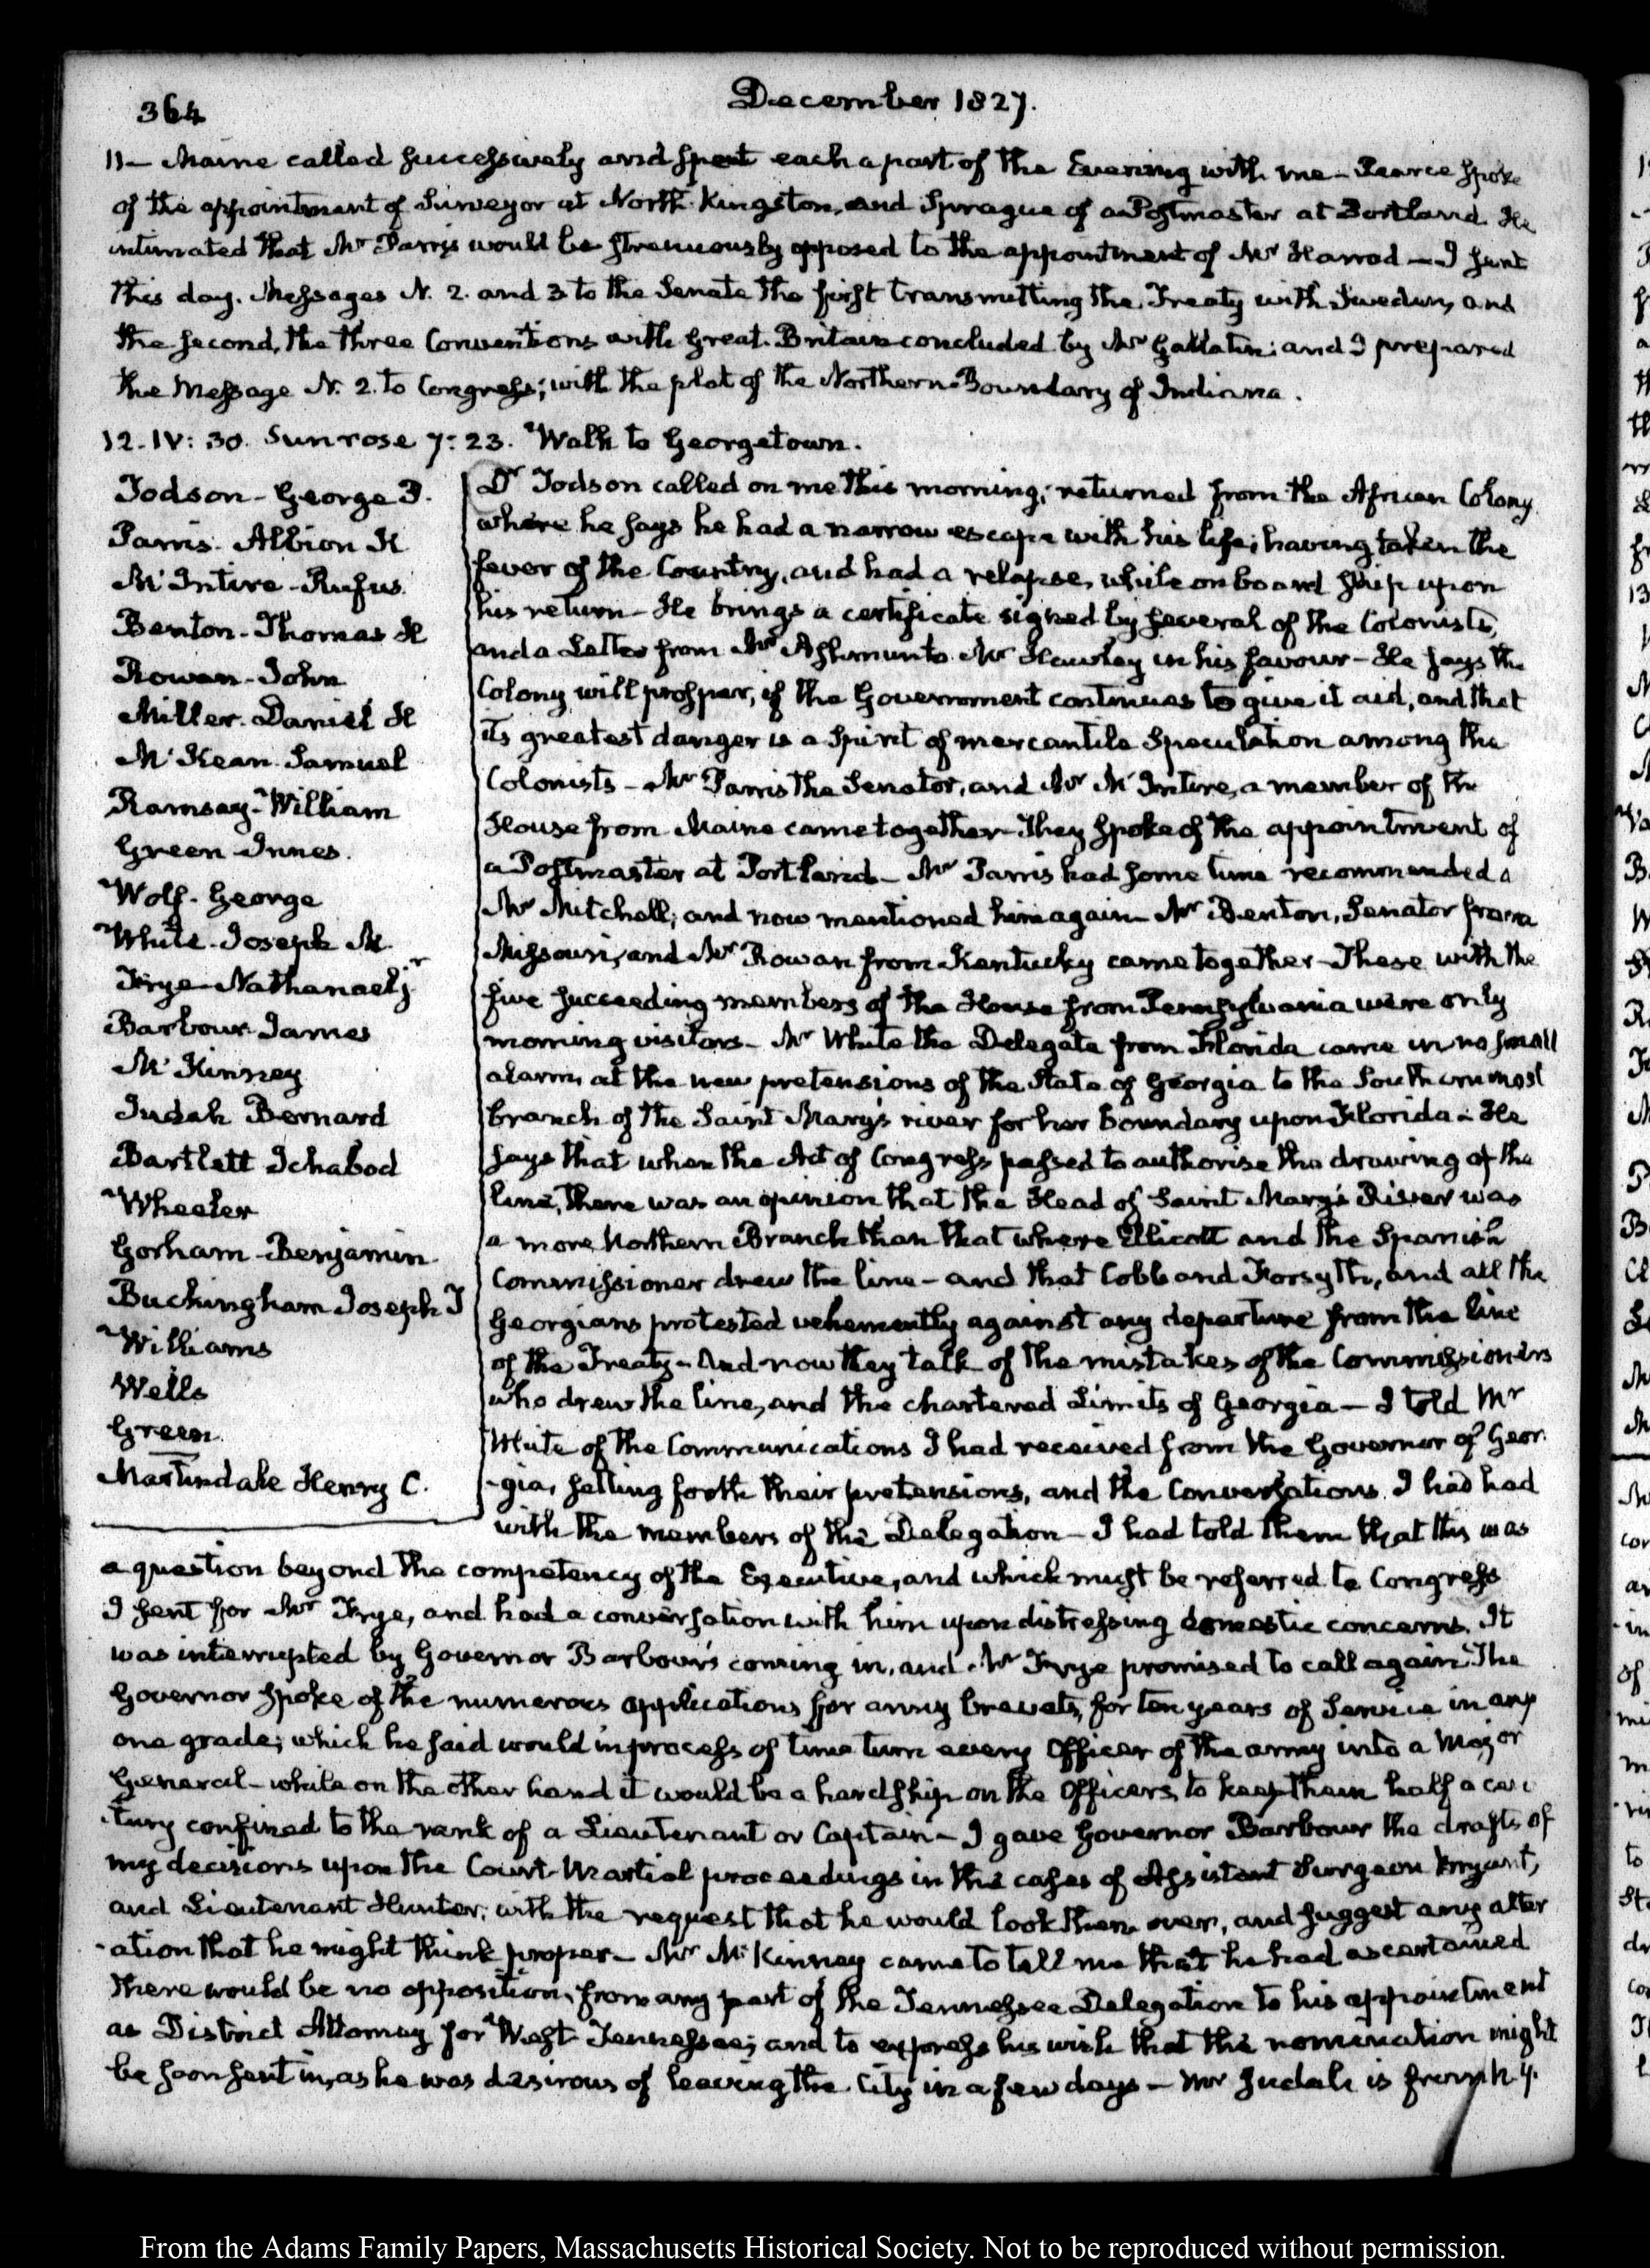 364
December 1827.
11— Maine called successively and spent each a part of the Evening with me— Pearce spoke
of the appointment of Surveyor at North Kingston, and Sprague of a Postmaster at Portland. He
intimated that Mr Parris would be strenuously opposed to the appointment of Mr Harrod— I sent
this day. Messages N. 2. and 3 to the Senate the first transmitting the Treaty with Sweden, and
the second, the three Conventions with Great-Britain concluded by Mr Gallatin: and I prepared
the Message N. 2. to Congress; with the plat of the Northern Boundary of Indiana.
12. IV: 30. Sun rose 7: 23. Walk to Georgetown.
Todson- George P.
Parris- Albion K
McIntire- Rufus
Benton- Thomas H
Rowan- John
Miller- Daniel H
McKean Samuel
Ramsay- William
Green Innes.
Wolf- George
White- Joseph M.
Frye- Nathaniel jr
Barbour James
McKinney
Judah Bernard
Bartlett Ichabod
Wheeler
Gorham- Benjamin
Buckingham Joseph T
Williams
Wells
Green
Martindale Henry C.
Dr Todson called on me this morning; returned from the African Colony
where he says he had a narrow escape with his life; having taken the
fever of the Country, and had a relapse, while on board ship upon
his return— He brings a certificate signed by several of the Colonists,
and a Letter from Mr Ashmun to Mr Hawley in his favour— He says the
Colony will prosper, if the Government continues to give it aid, and that
its greatest danger is a spirit of mercantile speculation among the
Colonists— Mr Parris the Senator, and Mr McIntire, a member of the
House from Maine came together— They spoke of the appointment of
a Postmaster at Portland— Mr Parris had some time recommended a
Mr Mitchell; and now mentioned him again— Mr Benton, Senator from
Missouri, and Mr Rowan from Kentucky came together— These with the
five succeeding members of the House from Pennsylvania were only
morning visitors— Mr White the Delegate from Florida came in no small
alarm, at the new pretensions of the State of Georgia to the Southernmost
branch of the Saint Mary's river for her boundary upon Florida— He
says that when the Act of Congress passed to authorise the drawing of the
line, there was an opinion that the Head of Saint Mary's River was
a more Northern Branch than that where Ellicott and the Spanish
Commissioner drew the line— and that Cobb and Forsyth, and all the
Georgians protested vehemently against any departure from the line
of the Treaty— And now they talk of the mistakes of the Commissioners
who drew the line, and the chartered Limits of Georgia— I told Mr
White of the Communications I had received from the Governor of Geor-
-gia, setting forth their pretensions, and the Conversations I had had
with the members of the Delegation— I had told them that this was
a question beyond the competency of the Executive, and which must be referred to Congress
I sent for Mr Frye, and had a conversation with him upon distressing domestic concerns. It
was interrupted by Governor Barbour's coming in, and Mr Frye promised to call again. The
Governor spoke of the numerous applications for army brevets, for ten years of Service in any
one grade; which he said would in process of time turn every Officer of the army into a Major
General— while on the other hand it would be a hardship on the Officers, to keep them half a cen
-tury confined to the rank of a Lieutenant or Captain— I gave Governor Barbour the drafts of
my decisions upon the Court-Martial proceedings in the cases of Assistant Surgeon Bryant,
and Lieutenant Hunter; with the request that he would look them over, and suggest any alter
-ation that he might think proper— Mr McKinney came to tell me that he had ascertained
there would be no opposition, from any part of the Tennessee Delegation to his appointment
as District Attorney for West Tennessee; and to express his wish that the nomination might
be soon sent in, as he was desirous of leaving the City in a few days— Mr Judah is from
From the Adams Family Papers, Massachusetts Historical Society. Not to be reproduced without permission.